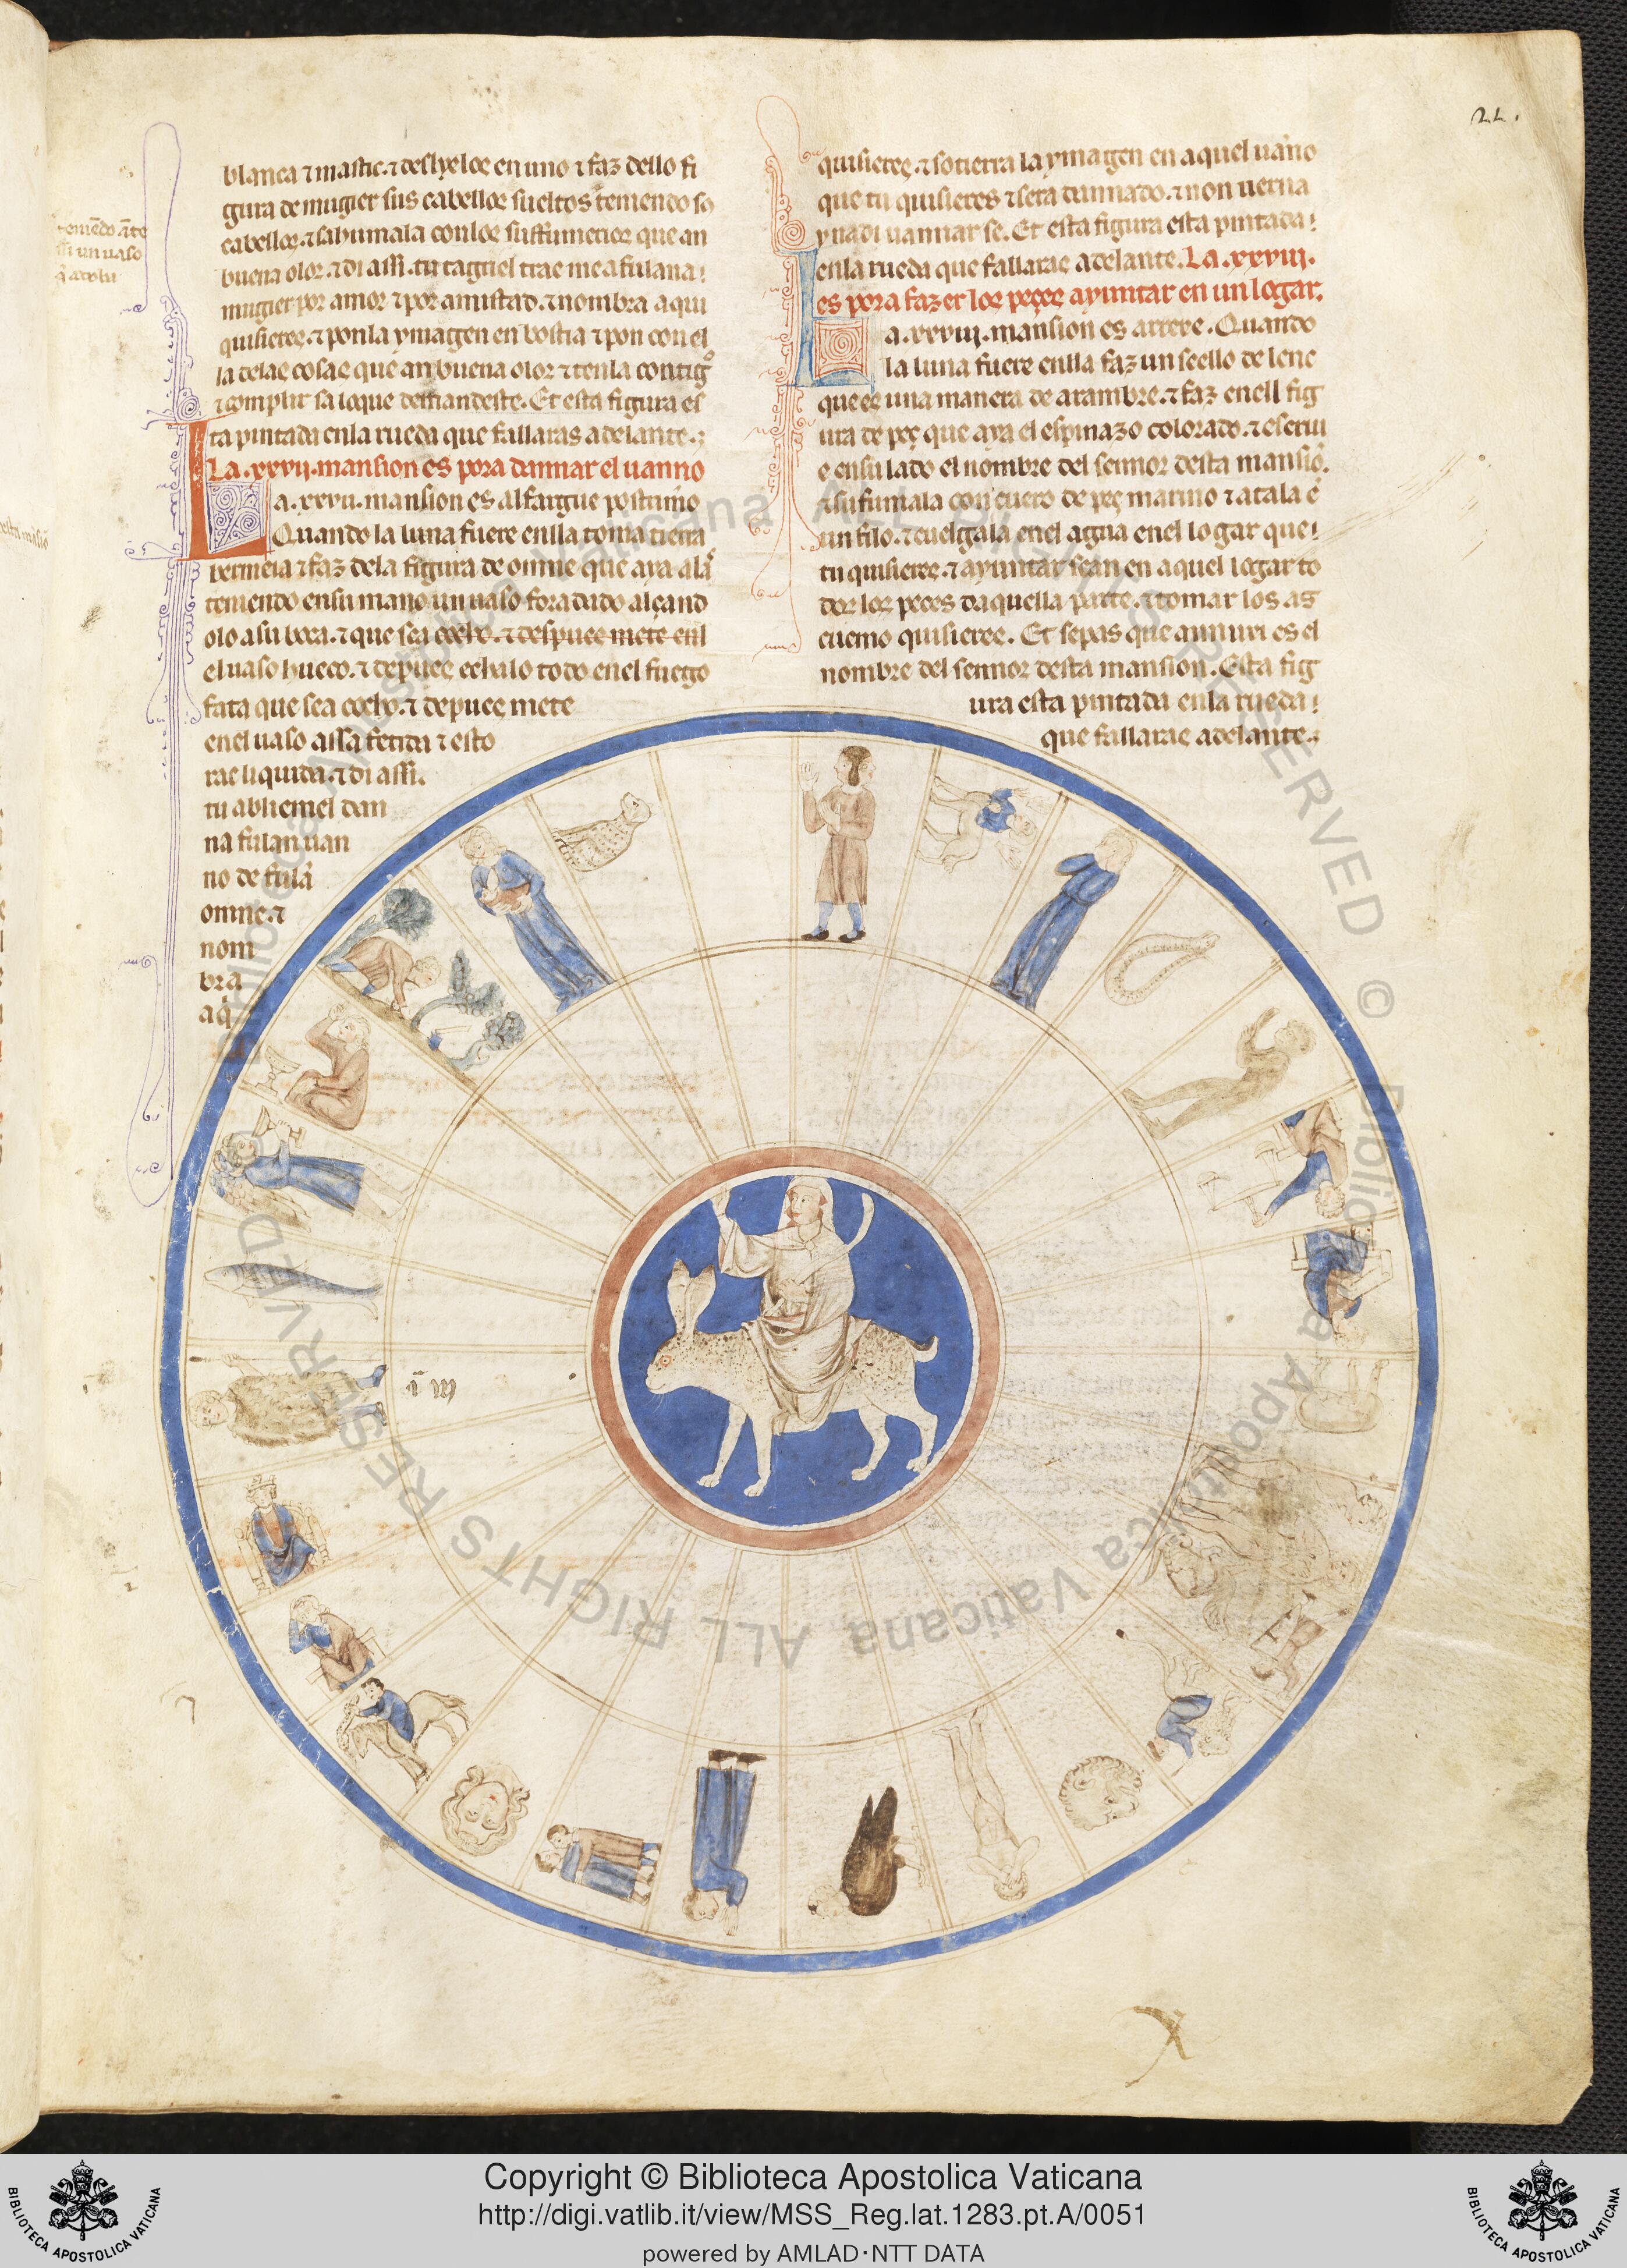 22.
blanca ⁊ mastic. ⁊ deslyelos en uno ⁊ faz dello fi
gura de mugier sus cabellos sueltos teniendo so
cabellos. ⁊ sahumala con los suffumerios que an
buena olor. ⁊ di assi. tu tagriel trae me a fulana
mugier por amor ⁊ por amistad. ⁊ nombra a qui
quisieres. ⁊ pon la ymagen en bostia ⁊ pon con el
la delas cosas que an buena olor ⁊ ten la contigo
⁊ complir sa lo que demandeste. Et esta figura es
ta pintada en la rueda que fallaras adelante.
La .xxvii. mansion es pora dannar el uanno
La .xxvii. mansion es alfargue postrimo
Quando la luna fuere en lla toma tierra
bermeia ⁊ faz dela figura de omne que aya alas
teniendo en su mano un uaso foradado alçand
olo a su boca. ⁊ que sea cocho. ⁊ despues mete enl
el uaso hueco. ⁊ depues echalo todo en el fuego
fata que sea cocho. ⁊ depues mete
en el uaso assa fetida ⁊ esto
rac liquida. ⁊ di assi.
tu abliemel dan
na fulan uan
no de fulã
omne. ⁊
nom
bra
a q̃
quisieres. ⁊ sotierra la ymagen en aquel uano
que tu quisieres ⁊ sera dannado. ⁊ non uerna
y nadi uannar se. Et esta figura esta pintada
en la rueda que fallaras adelante. La .xxviii.
es pora fazer los peçes ayuntar en un logar.
La .xxviii. mansion es arrexe. Quando
la luna fuere en lla faz un seello de lene
que es una manera de arambre. ⁊ faz en ell fig
ura de peç que aya el espinazo colorado. ⁊ escriu
e en su lado el nombre del sennor desta mansiõ.
⁊ sufumala con cuero de peç marino ⁊ atala ẽ
un filo. ⁊ cuelgala en el agua en el logar que
tu quisieres. ⁊ ayuntar sean en aquel logar to
dos los peces daquella parte. ⁊ tomar los as
cuemo quisieres. Et sepas que annuxi es el
nombre del sennor desta mansion. Esta fig
ura esta pintada en la rueda
que fallaras adelante.
Copyright © Biblioteca Apostolica Vaticana
http://digi.vatlib.it/view/MSS_Reg.lat.1283.pt.A/0051
powered by AMLAD·NTT DATA
BIBLIOTECA APOSTOLICA VATICANA
BIBLIOTECA APOSTOLICA VATICANA
Biblioteca Apostolica Vaticana ALL RIGHTS RESERVED © Biblioteca Apostolica Vaticana ALL RIGHTS RESERVED ©